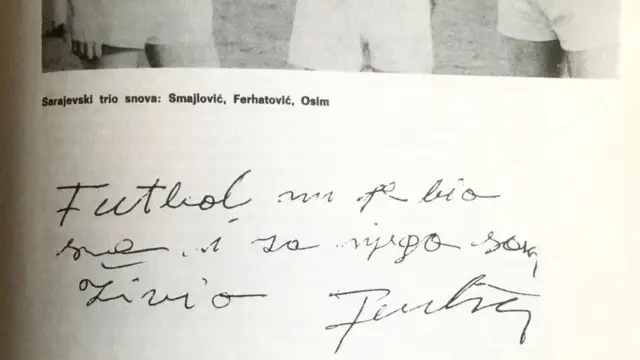 Sarajevski trio snova: Smajlović, Ferhatović, Osim
Futbol mi je bio
sve i za njega sam
živio